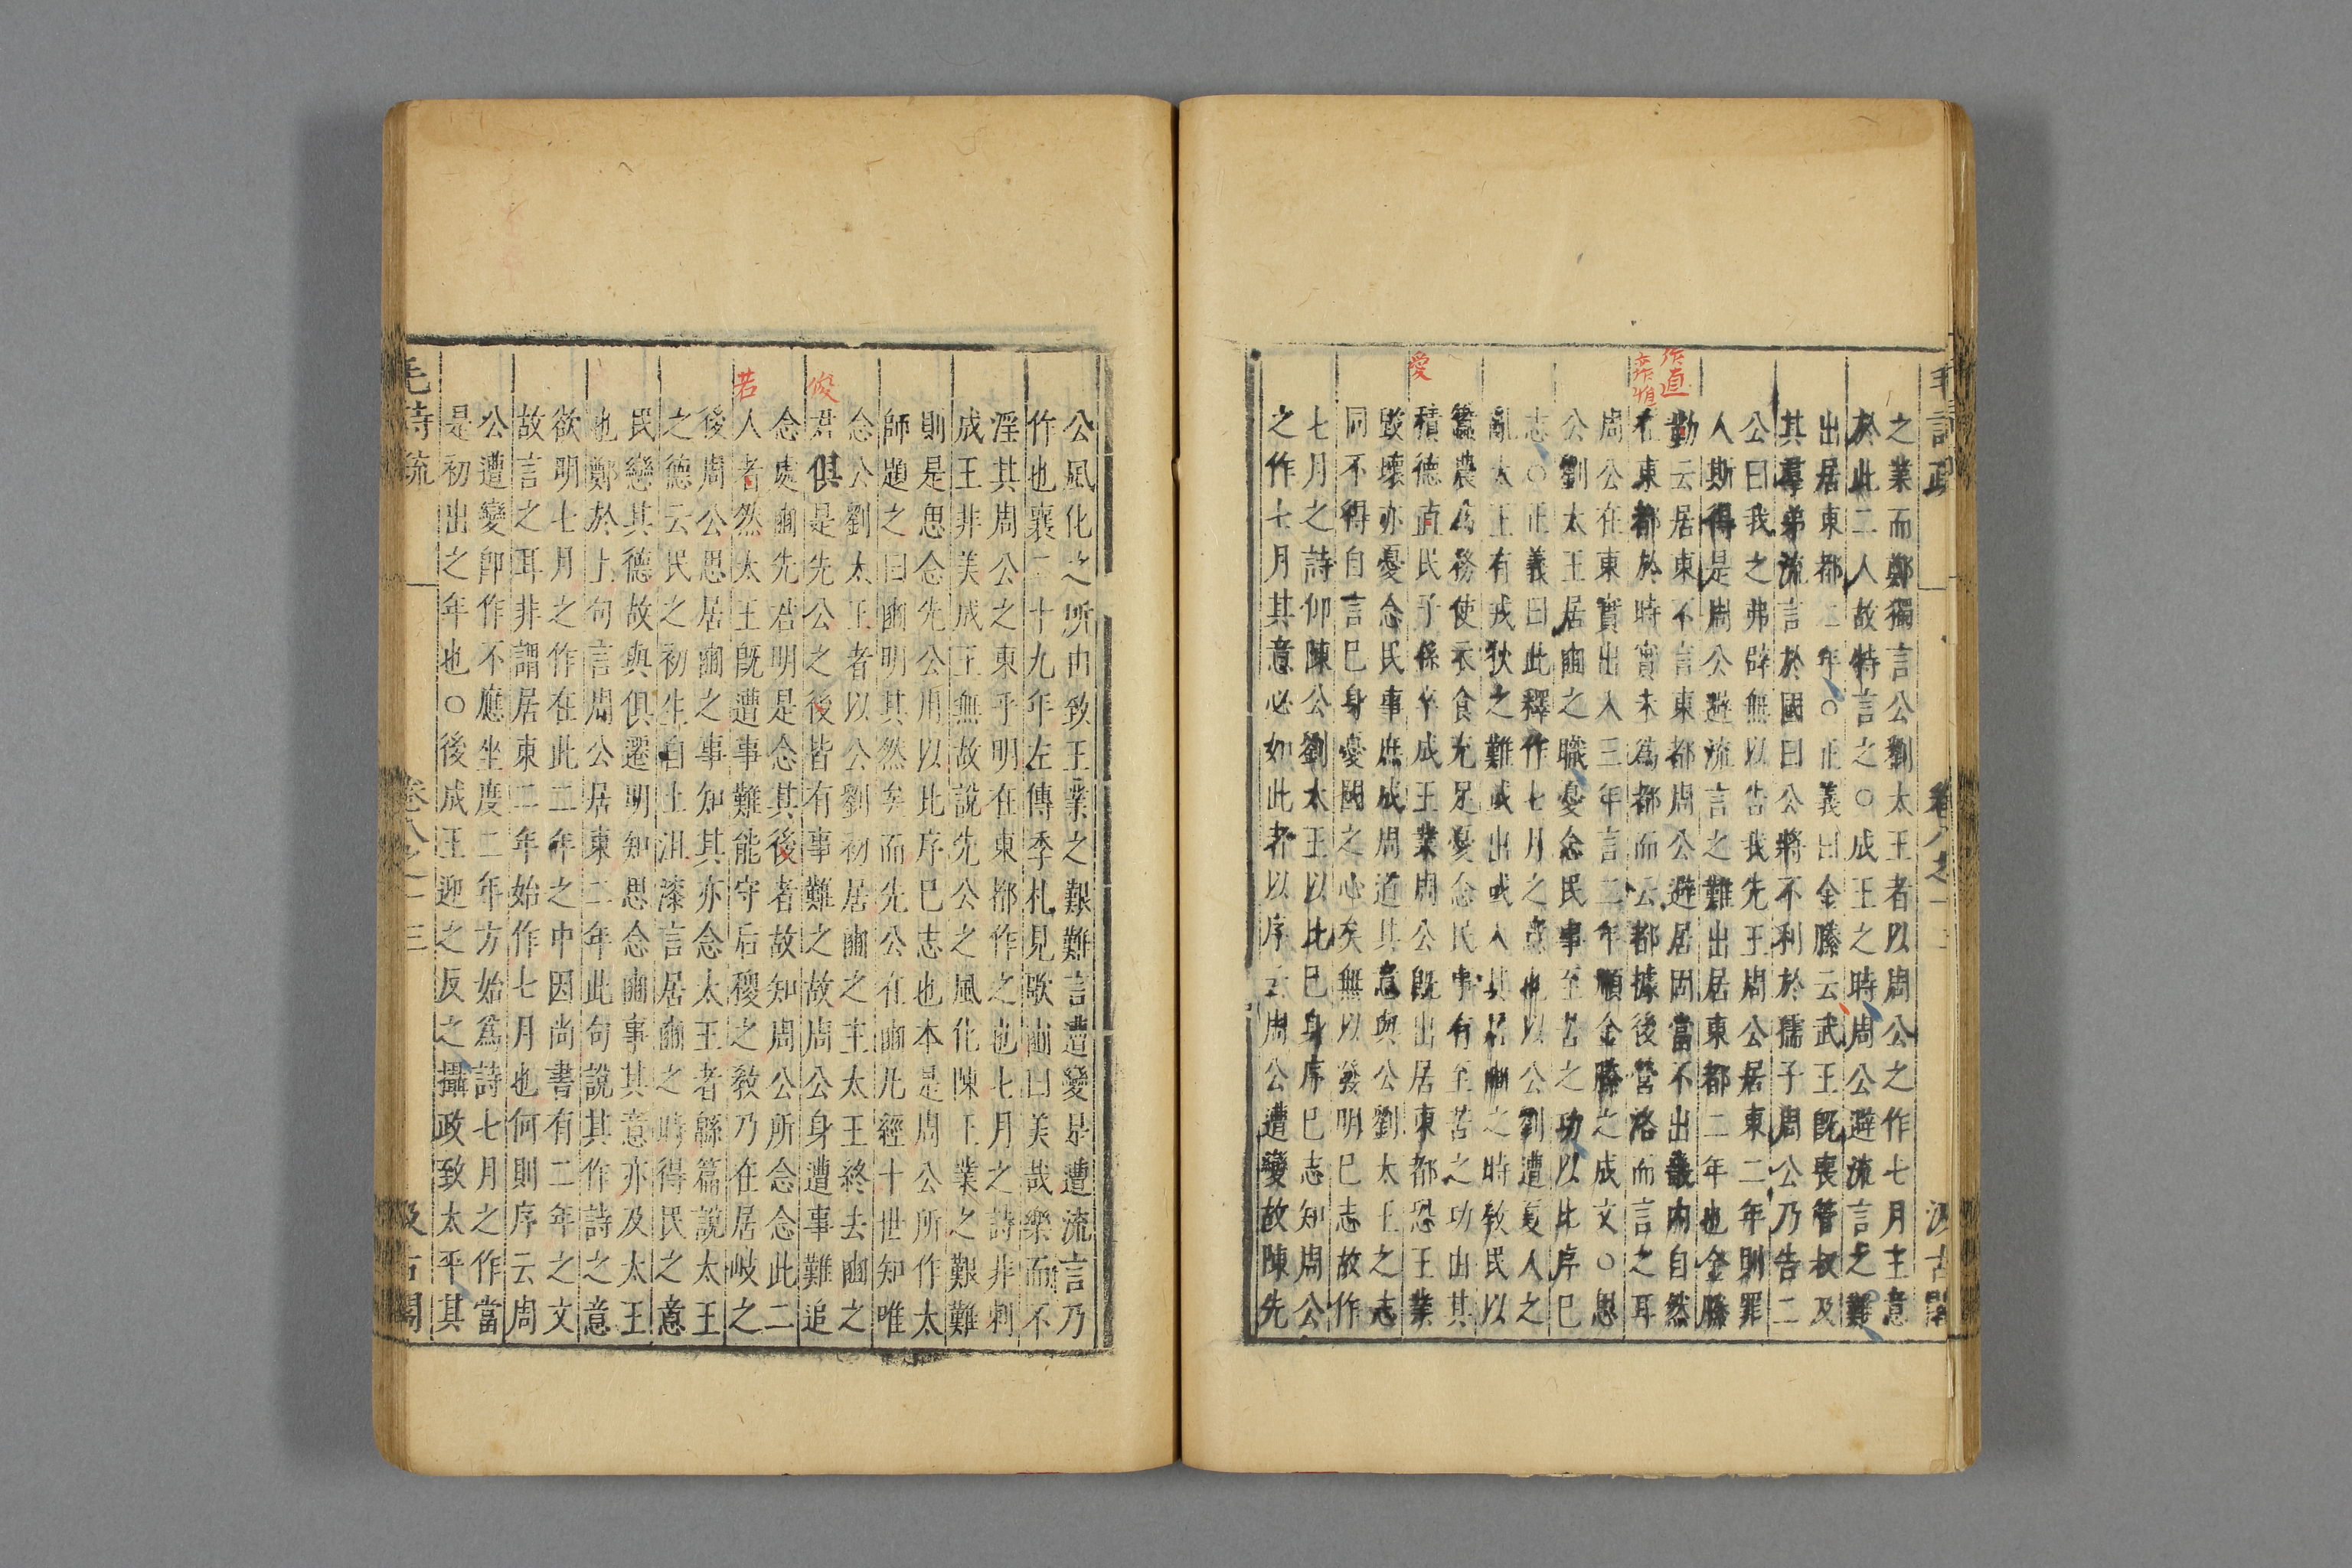 之業而鄭獨言公劉太王者以周公之作七月主意
於此二人故特言之○成王之時周公避流言之難
出居東都二年○正義曰金縢云武王旣喪管叔及
其羣弟流言於國曰公將不利於孺子周公乃告二
公曰我之弗辟無以告我先王周公居東二年則罪
人斯得是周公避流言之難出居東都二年也金縢
勤云居東不言東都周公避居固當不出畿内自然
在東都於時實未爲都而云都據後營洛而言之耳
周公在東實出入三年言二年順金縢之成文○思
公劉太王居豳之職憂念民事至苦之功以此序已
志○正義曰此釋作七月之意也以公劉遭夏人之
亂太王有戎狄之難或出或入其居豳之時敎民以
蠶農爲務使衣食充足憂念民事有至苦之功由其
積德直民子孫卒成王業周公旣出居東都恐王業
毀壞亦憂念民事庶成周道其意與公劉太王之志
同不得自言已身憂國之心矣無以發明已志故作
七月之詩仰陳公劉太王以比已身序已志知周公
之作七月其意必如此者以序云周公遭變故陳先
作直
弈作惟
愛
毛詩疏
卷八之一
三
汲古閣
公風化之所由致王業之艱難言遭變是遭流言乃
作也襄二十九年左傳季札見歌豳曰美哉樂而不
淫其周公之東乎明在東都作之也七月之詩非刺
成王非美成王無故說先公之風化陳王業之艱難
則是思念先公用以比序巳志也本是周公所作太
師題之曰豳明其然矣而先公在豳凡經十世知唯
念公劉太王者以公劉初居豳之主太王終去豳之
君俱是先公之後皆有事難之故周公身遭事難追
念處豳先君明是念其後者故知周公所念念此二
人者然太王旣遭事難能守后稷之敎乃在居岐之
後周公思居豳之事知其亦念太王者緜篇說太王
之德云民之初生自土沮漆言居豳之時得民之意
民戀其德故與俱遷明知思念豳事其意亦及太王
也鄭於上句言周公居東二年此句說其作詩之意
欲明七月之作在此二年之中因尚書有二年之文
故言之耳非謂居東二年始作七月也何則序云周
公遭變卽作不應坐度二年方始爲詩七月之作當
是初出之年也○後成王迎之反之攝政致太平其
俊
若
毛詩疏
卷八之一
三
汲古閣